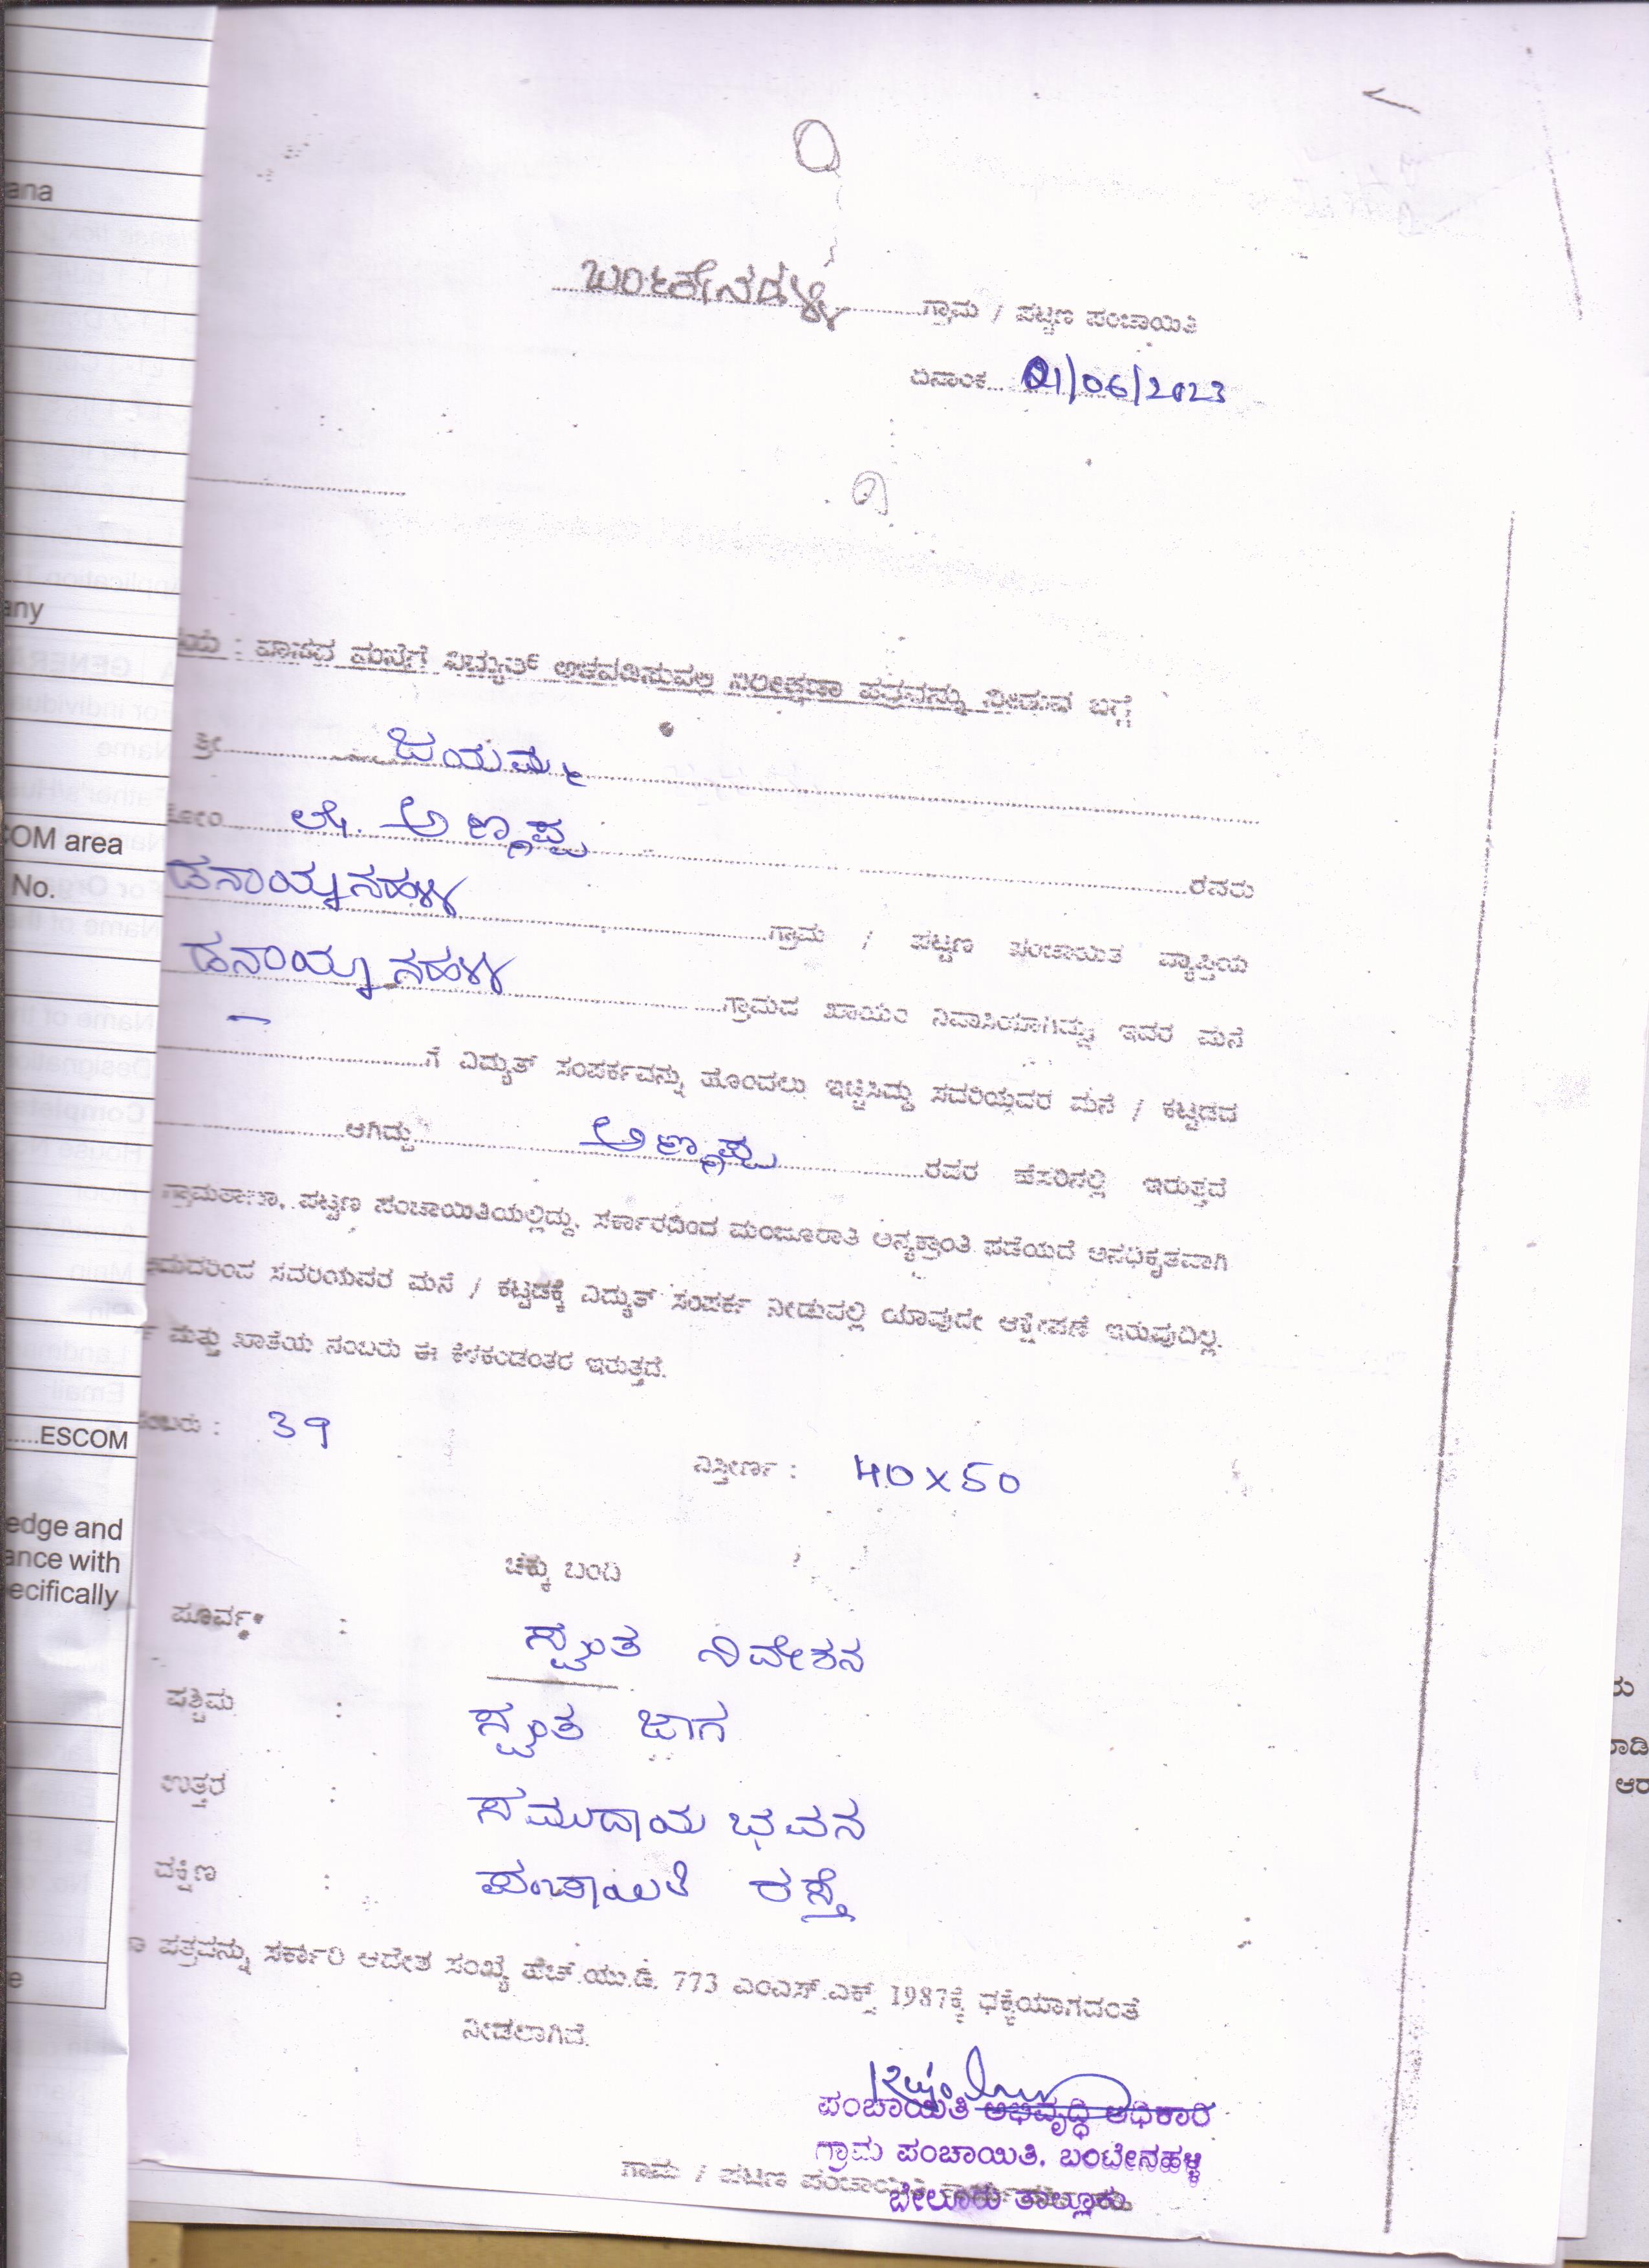 ಬಂಟೇನಹಳ್ಳಿ ಗ್ರಾಮ / ಪಟ್ಟಣ ಪಂಚಾಯಿತಿ
ದಿನಾಂಕ 01/06/2023
ವಾಸದ ಮನೆಗೆ ವಿದ್ಯುತ್ ಅಳವಡಿಸುವಲ್ಲಿ ನಿರೀಕ್ಷಣಾ ಪತ್ರವನ್ನು ನೀಡುವ ಬಗ್ಗೆ
ಶ್ರೀ ಜಯಮ್ಮ
ಕೋಂ ಲೇ. ಅಣ್ಣಪ್ಪ ರವರು
ಡನಾಯ್ಕನಹಳ್ಳಿ ಗ್ರಾಮ / ಪಟ್ಟಣ ಪಂಚಾಯಿತಿ ವ್ಯಾಪ್ತಿಯ
ಡನಾಯ್ಕನಹಳ್ಳಿ ಗ್ರಾಮದ ಖಾಯಂ ನಿವಾಸಿಯಾಗಿದ್ದು ಇವರ ಮನೆ
ಗೆ ವಿದ್ಯುತ್ ಸಂಪರ್ಕವನ್ನು ಹೊಂದಲು ಇಚ್ಛಿಸಿದ್ದು ಸದರಿಯವರ ಮನೆ / ಕಟ್ಟಡದ
ಆಗಿದ್ದು ಅಣ್ಣಪ್ಪ ರವರ ಹೆಸರಿನಲ್ಲಿ ಇರುತ್ತದೆ
ಗ್ರಾಮಠಾಣಾ, ಪಟ್ಟಣ ಪಂಚಾಯಿತಿಯಲ್ಲಿದ್ದು, ಸರ್ಕಾರದಿಂದ ಮಂಜೂರಾತಿ ಅನ್ಯಕ್ರಾಂತಿ ಪಡೆಯದೆ ಅನಧಿಕೃತವಾಗಿ
ಸದರಿಯವರ ಮನೆ / ಕಟ್ಟಡಕ್ಕೆ ವಿದ್ಯುತ್ ಸಂಪರ್ಕ ನೀಡುವಲ್ಲಿ ಯಾವುದೇ ಆಕ್ಷೇಪಣೆ ಇರುವುದಿಲ್ಲ.
ಮತ್ತು ಖಾತೆಯ ನಂಬರು ಈ ಕೆಳಕಂಡಂತರ ಇರುತ್ತದೆ.
ನಂಬರು : 39
ವಿಸ್ತೀರ್ಣ : 40x50
ಚಕ್ಕು ಬಂದಿ
ಪೂರ್ವ : ಸ್ವಂತ ನಿವೇಶನ
ಪಶ್ಚಿಮ : ಸ್ವಂತ ಜಾಗ
ಉತ್ತರ : ಸಮುದಾಯ ಭವನ
ದಕ್ಷಿಣ : ಪಂಚಾಯಿತಿ ರಸ್ತೆ
ಪತ್ರವನ್ನು ಸರ್ಕಾರಿ ಆದೇಶ ಸಂಖ್ಯೆ ಹೆಚ್.ಯು.ಡಿ. 773 ಎಂಎಸ್.ಎಕ್ಸ್ 1987ಕ್ಕೆ ಧಕ್ಕೆಯಾಗದಂತೆ
ನೀಡಲಾಗಿದೆ.
ಪಂಚಾಯಿತಿ ಅಭಿವೃದ್ಧಿ ಅಧಿಕಾರಿ
ಗ್ರಾಮ ಪಂಚಾಯಿತಿ, ಬಂಟೇನಹಳ್ಳಿ
ಬೇಲೂರು ತಾಲ್ಲೂಕು
ಗ್ರಾಮ / ಪಟ್ಟಣ
COM area
No.
ESCOM
edge and
ance with
ecifically